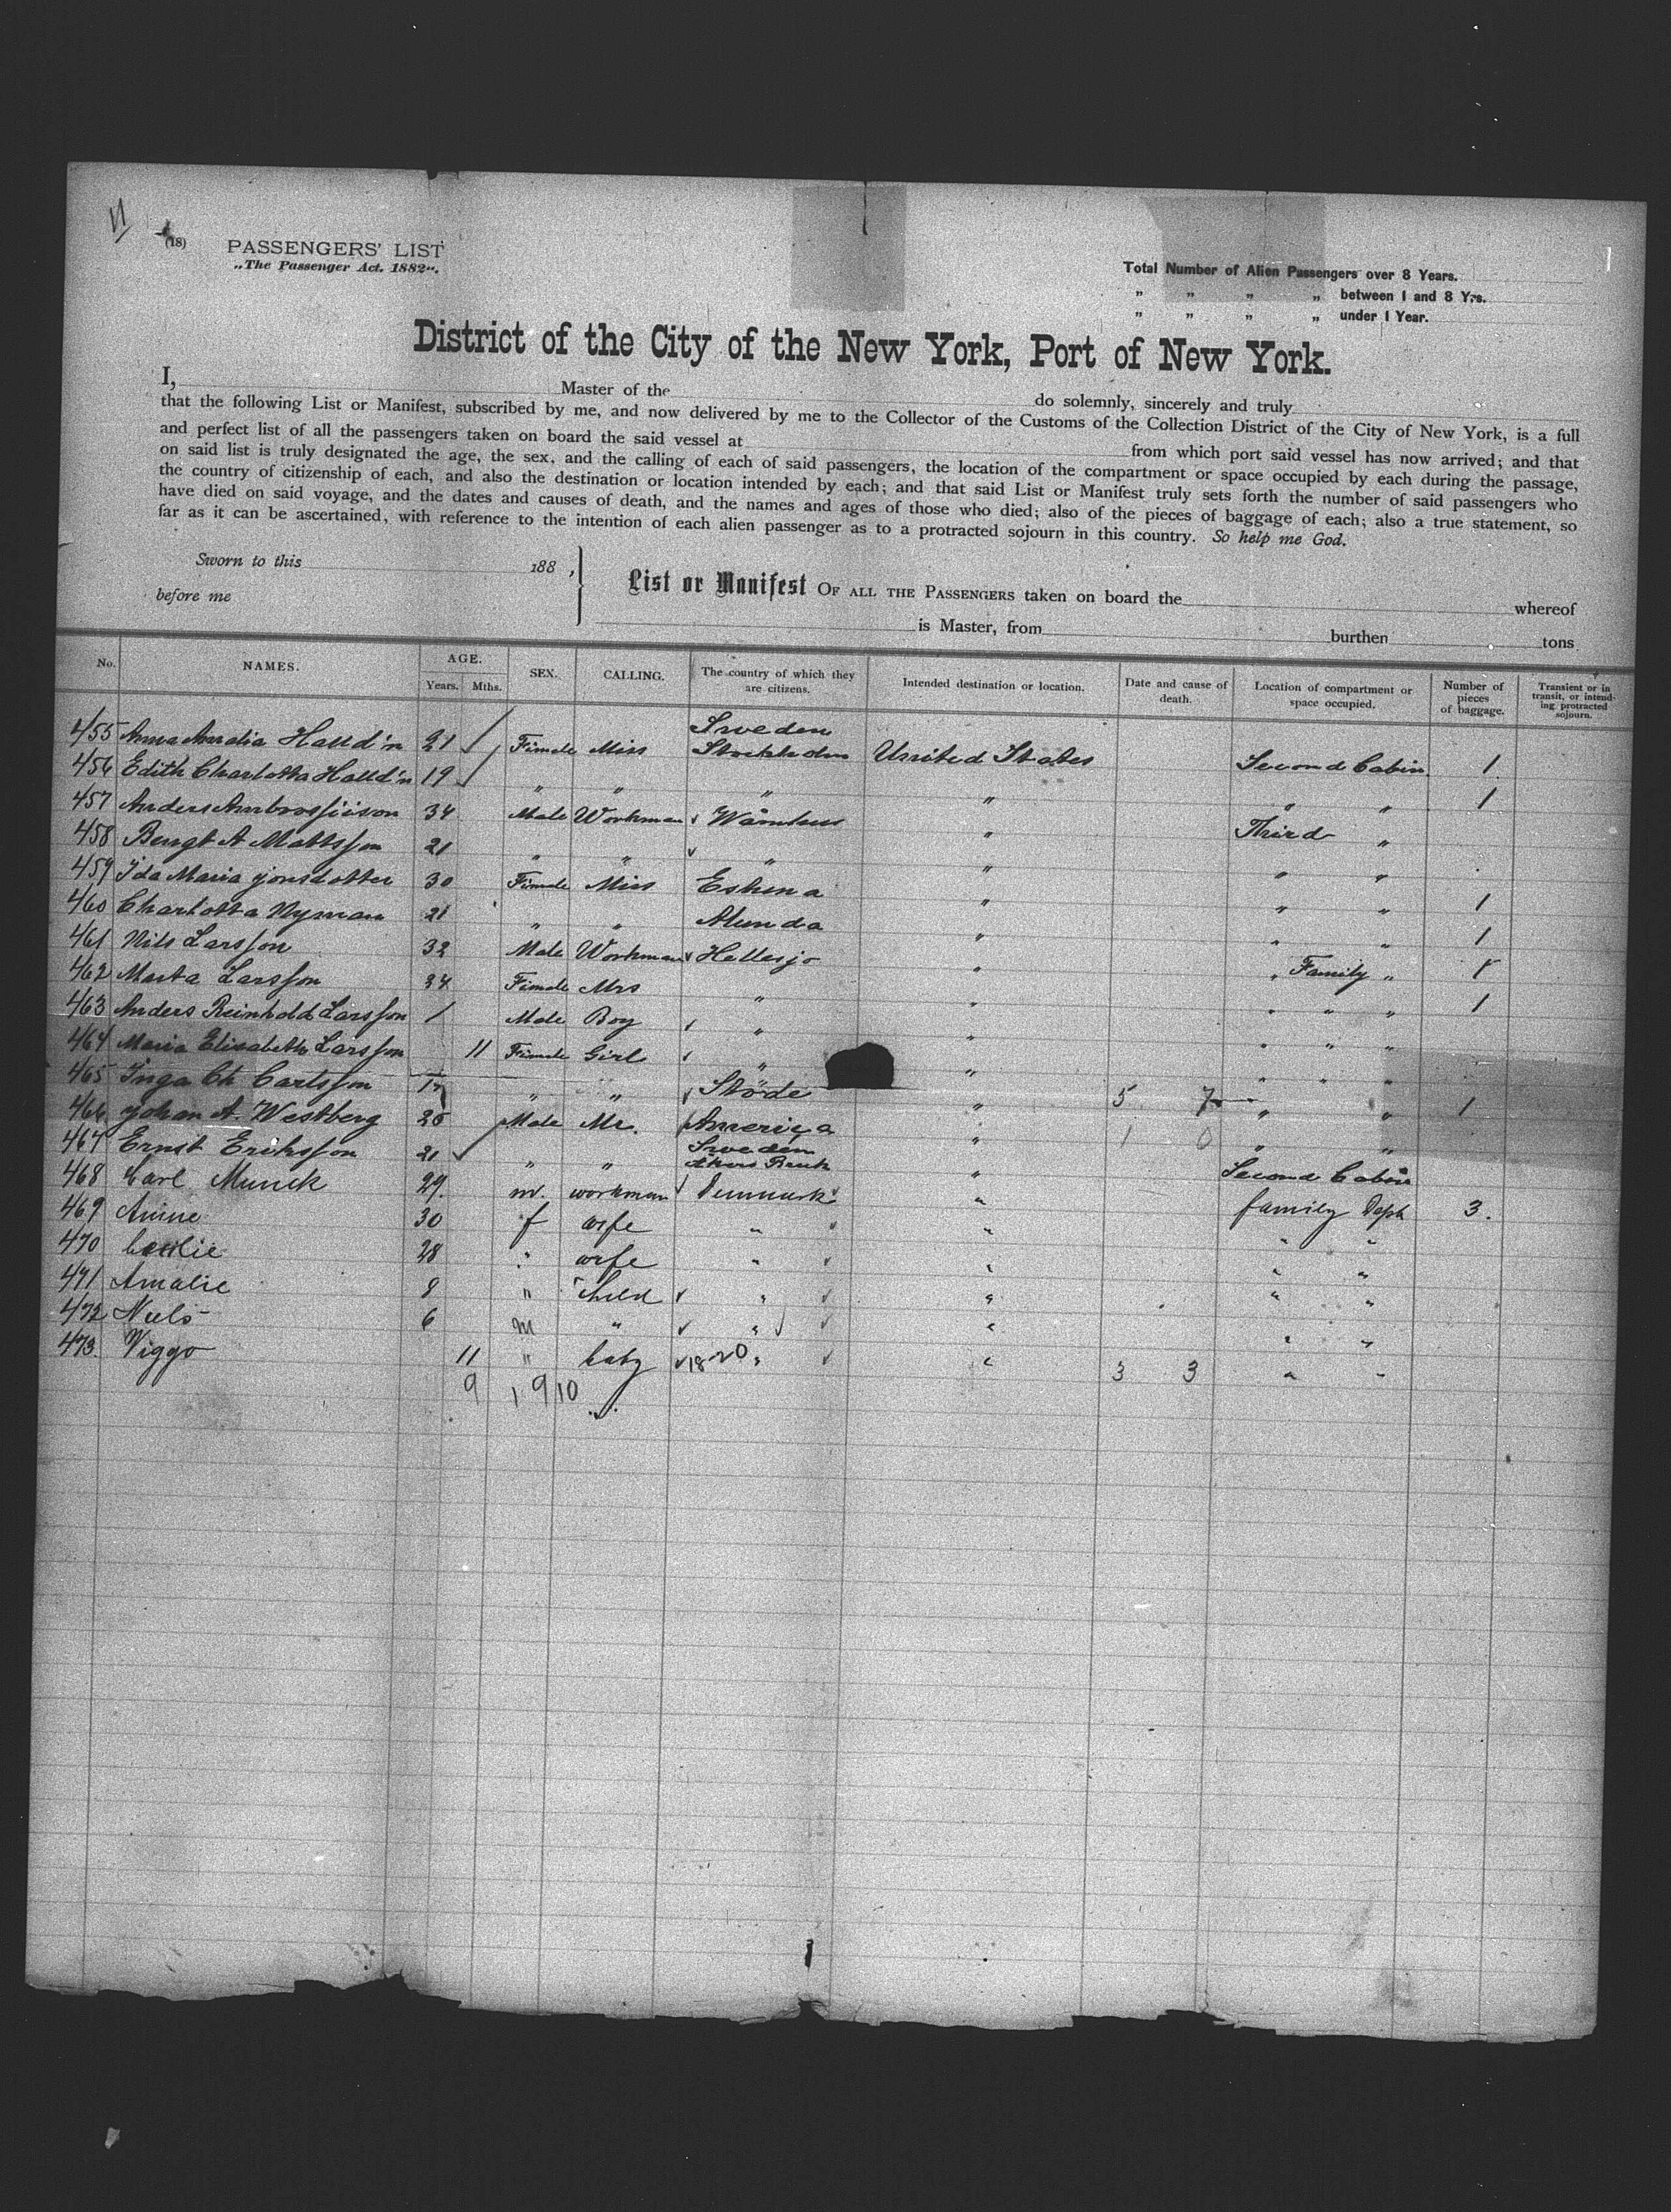 11
(18) PASSENGERS' LIST
„The Passenger Act, 1882".
Total Number of Alien Passengers over 8 Years.
„ „ „ „ between 1 and 8 Yrs.
„ „ „ „ under 1 Year.
District of the City of the New York, Port of New York.
I, Master of the do solemnly, sincerely and truly
that the following List or Manifest, subscribed by me, and now delivered by me to the Collector of the Customs of the Collection District of the City of New York, is a full
and perfect list of all the passengers taken on board the said vessel at from which port said vessel has now arrived; and that
on said list is truly designated the age, the sex, and the calling of each of said passengers, the location of the compartment or space occupied by each during the passage,
the country of citizenship of each, and also the destination or location intended by each; and that said List or Manifest truly sets forth the number of said passengers who
have died on said voyage, and the dates and causes of death, and the names and ages of those who died; also of the pieces of baggage of each; also a true statement, so
far as it can be ascertained, with reference to the intention of each alien passenger as to a protracted sojourn in this country. So help me God.
Sworn to this 188 ,
before me
List or Manifest OF ALL THE PASSENGERS taken on board the whereof
is Master, from burthen tons
No. NAMES. AGE. Years. Mths. SEX. CALLING. The country of which they are citizens. Intended destination or location. Date and cause of death. Location of compartment or space occupied. Number of pieces of baggage. Transient or in transit, or intending protracted sojourn.
455 Anna Amalia Halld'n 21 Female Miss Sweden Stockholm United States Second Cabin 1
456 Edith Charlotta Halld'n 19 " " " " " " 1
457 Anders 34 Male Workman Wåmhus " Third "
458 Bengt A Mattsson 21 " " " " " "
459 Ida Maria jonsdotter 30 Female Miss " " " 1
460 Charlotta Nyman 21 " " Alunda " " " 1
461 Nils Larsson 32 Male Workman Hellesjo " " Family " 1
462 Marta Larsson 34 Female Mrs " " " " " 1
463 Anders Reinhold Larsson 1 Male Boy " " " " "
464 Maria Elisabeth Larsson 11 Female Girl " " " " "
465 Inga Ch Carlsson 17 " " Stöde " 5 7 " " 1
466 johan A. Westberg Male Mr. America " 1 0 " "
467 Ernst Eriksson 21 " " Sweden Åkers Bruk " Second Cabin
468 Carl Munck 29. m. workman Denmark " family Dept 3.
469 Anine 30 f wife " " " "
470 28 " wife " " " "
471 Amalie 8 " Child " " " "
472 Niels 6 m " " " " "
473. Viggo 11 " baby 18-20 " " 3 3 " "
9 1 9 10